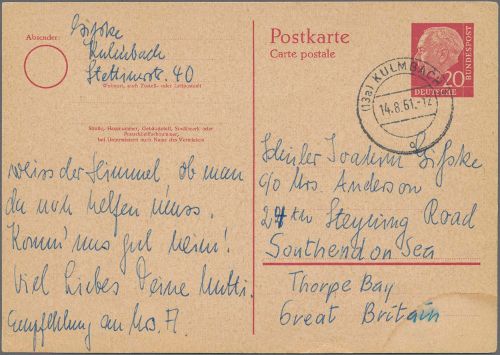 Absender:
Kulmbach
Stettinerstr. 40
Wohnort, auch Zustell- oder Leitpostamt
Straße, Hausnummer, Gebäudeteil, Stockwerk oder
Postschließfachnummer,
bei Untermietern auch Name des Vermieters
weiss der Himmel ob man
da noch helfen muss.
Komm' uns gut heim!
Viel Liebes Deine Mutti.
Empfehlung an Mrs. A.
Postkarte
Carte postale
20
DEUTSCHE
BUNDESPOST
(13a) KULMBACH
14.8.61.-12
d
Schüler Joachim
c/o Mrs. Anderson
Steyning Road
Southend on Sea
Thorpe Bay
Great Britain